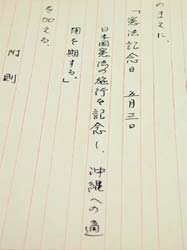 のまえに、
「憲法記念日　五月三日
日本国憲法の施行を記念し、沖縄への適
用を期する。」
を加える。
附則